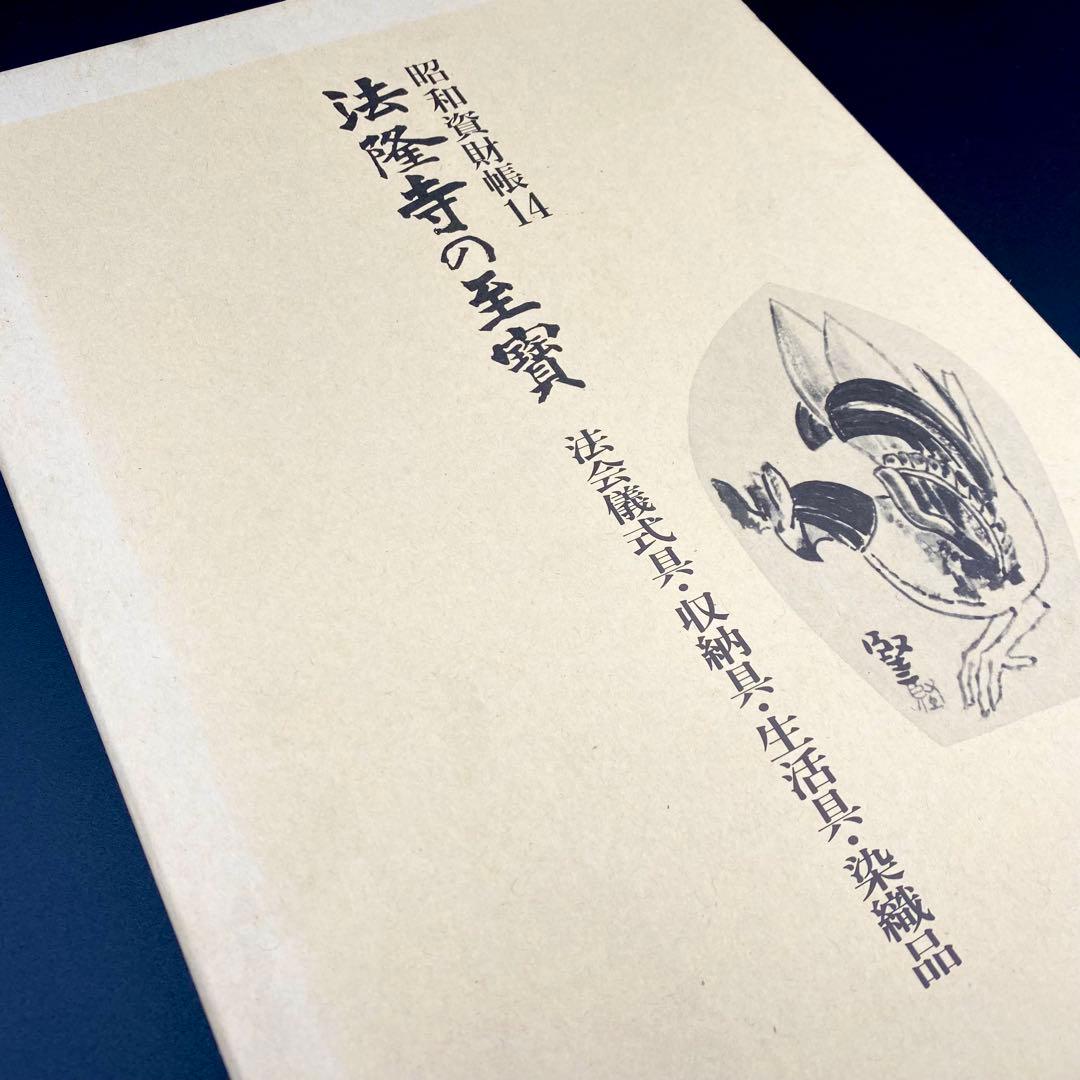 昭和資財帳14
法隆寺の至寶
法会儀式具・収納具・生活具・染織品